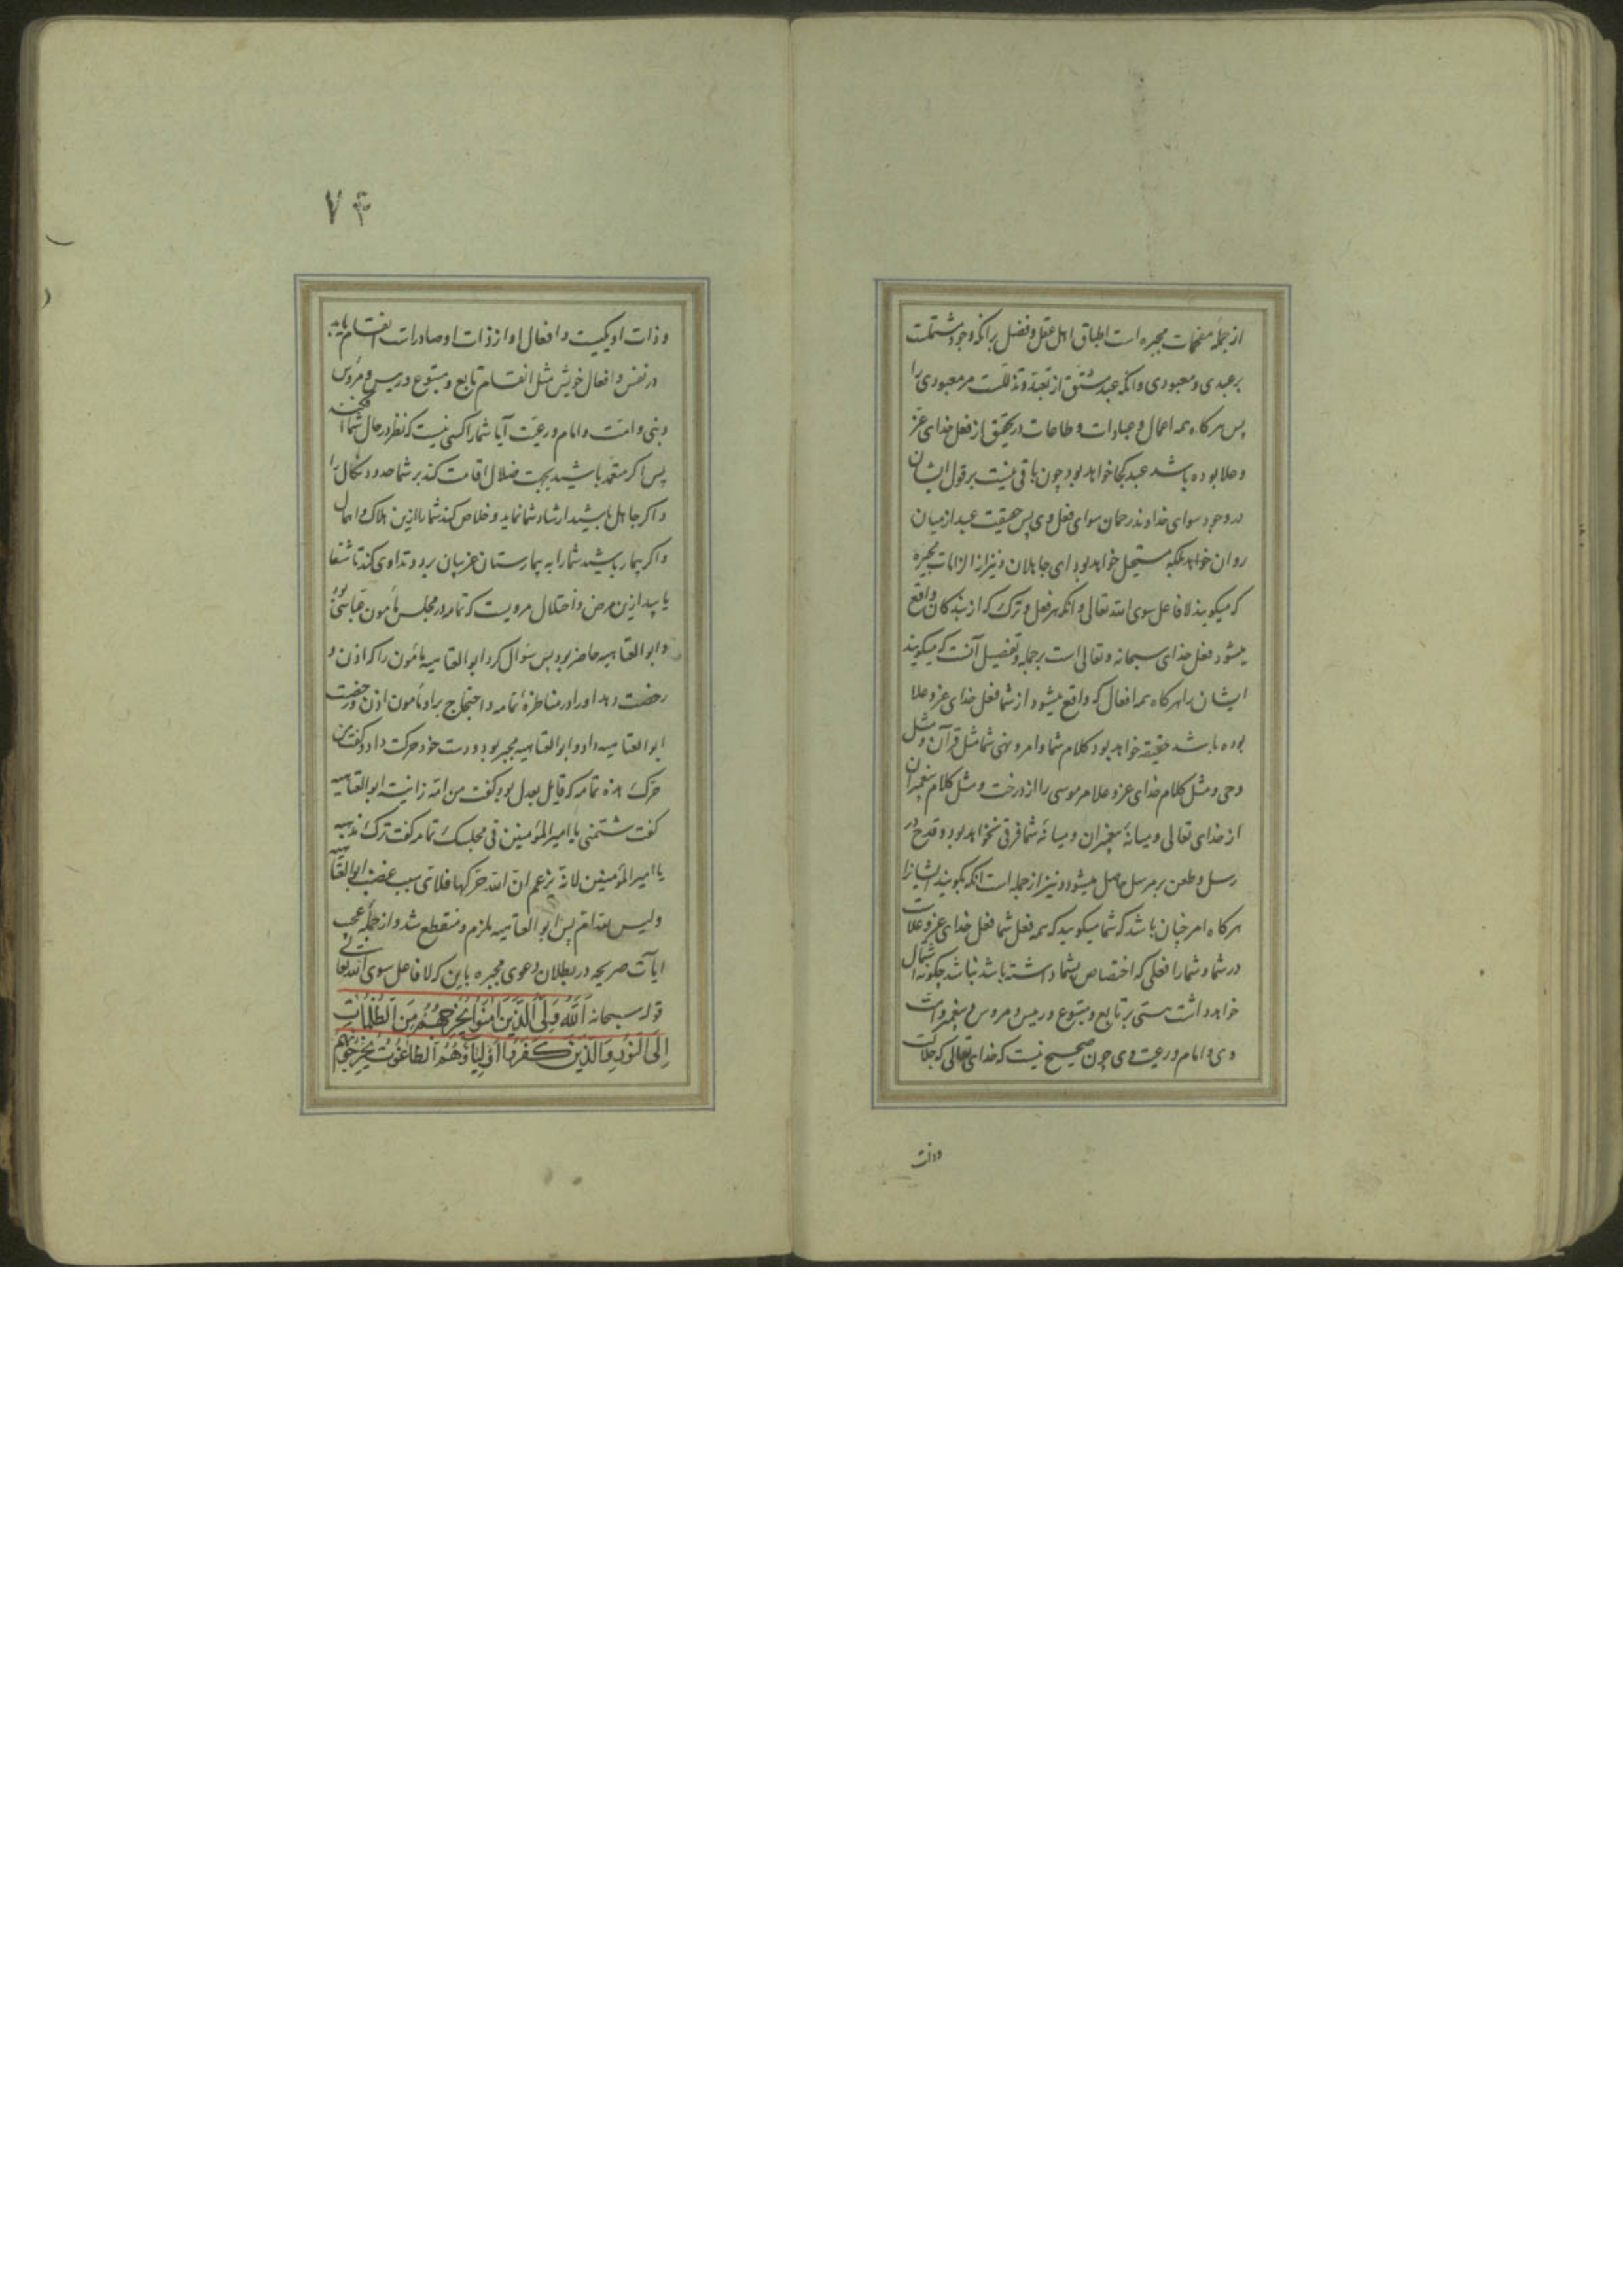 از جمله مفحمات مجبره است اطباق اهل عقل و فضل بر آنکه وجود مشتملست
بر عبدی و معبودی و آنکه عبد مشتق از تعبد و تذللست مر معبودی را
پس هرکاه همه اعمال و عبادات و طاعات در تحقیق از فعل خدای عز
و علا بوده باشد عبد کجا خواهد بود چون باقی نیست بر قول ایشان
در وجود سوای خداوند رحمان سوای فعل وی پس حقیقت عبد از میان
روان خواهد بلکه مستحیل خواهد بود ای جاهلان و نیز از الزامات مجبره
که میکویند لا فاعل سوی الله تعالی و آنکه هر فعل و ترک که از بندکان واقع
میشود فعل خدای سبحانه و تعالی است بر جمله و تفصیل آنست که میکویند
ایشان را هرکاه همه افعال که واقع میشود از شما فعل خدای عز و علا
بوده باشد حقیقة خواهد بود کلام شما و امر و نهی شما مثل قرآن و مثل
وحی و مثل کلام خدای عز و علا مر موسی را از درخت و مثل کلام پیغمبران
از خدای تعالی و میانهٔ پیغمبران و میانهٔ شما فرقی نخواهد بود و قدح در
رسل و طعن بر مرسل حاصل میشود و نیز از جمله است آنکه بکویند ایشانرا
هرکاه امر چنان باشد که شما میکویید که همه فعل شما فعل خدای عز و علاست
در شما و شما را فعلی که اختصاص بشما داشته باشد نباشد چکونه اشتمال
خواهد داشت هستی بر تابع و متبوع و رییس و مروس و پیغمبر و امت
وی و امام و رعیت وی چون صحیح نیست که خدای تعالی که جلالت
وذات
۷۴
و ذات او یکیست و افعال او از ذات او صادراست انقسام یابد
در نفس و افعال خویش مثل انقسام تابع و متبوع و رییس و مروس
و نبی و امت و امام و رعیت آیا شما را کسی نیست که نظر در حال شما افکند
پس اکر متعمد باشید بجهت ضلال اقامت کند بر شما حدود نکال را
و اکر جاهل باشید ارشاد شما نماید و خلاص کند شما را ازین هلاک و اهمال
و اکر بیمار باشید شما را به بیمارستان غریبان برد و تداوی کند تا شفا
یابید ازین مرض و اختلال مرویست که ثمامه در مجلس مأمون عباسی بود
و ابو العتاهیه حاضر بود پس سؤال کرد ابو العتاهیه مأمون را که اذن و
رخصت دهد او را در مناظرهٔ ثمامه و احتجاج بر او مأمون اذن و رخصت
ابو العتاهیه داد و ابو العتاهیه مجبر بود و دست خود حرکت داد و کفت من
حرک هذه ثمامه که قایل بعدل بود کفت من امه زانیة ابو العتاهیه
کفت شتمنی یا امیر المؤمنین فی مجلسک ثمامه کفت ترک مذهبه
یا امیر المؤمنین لانه یزعم ان الله حرکها فلای سبب غضب ابو العتاهیه
ولیس لله ام پس ابو العتاهیه ملزم و منقطع شد و از جمله عجب
ایآت صریحه در بطلان دعوی مجبره باین که لا فاعل سوی الله تعالی
قوله سبحانه اَللّٰهُ وَلِیُّ الَّذینَ اٰمَنُوا یُخْرِجُهُمْ مِنَ الظُّلُمٰاتِ
اِلَی النُّورِ وَالَّذینَ کَفَرُوا اَوْلِیٰاؤُهُمُ الطّٰاغُوتُ یُخْرِجُونَهُمْ